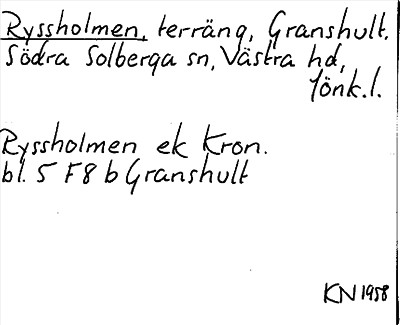 Ryssholmen, terräng, Granshult,
Södra Solberga sn, Västra hd,
Jönk.l.
Ryssholmen ek Kron.
bl. 5 F8 b Granshult
KN 1958